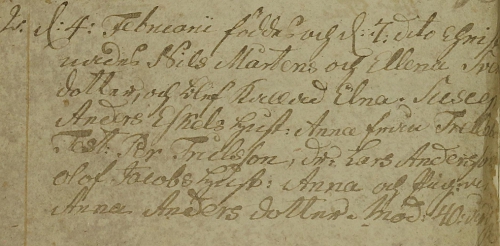 2. d: 4: Februarii föddes och d: 7: dito Chris
nades Nils Mårtens och Ellena
dotter, och blef kallad Elna. Suscep
Anders Eskels hust: Anna fruu
Test: Per Trulsson, dr: Lars Anders
Olof Jacobs hust: Anna och Pig:
Anna Anders dotter Mod: 40: